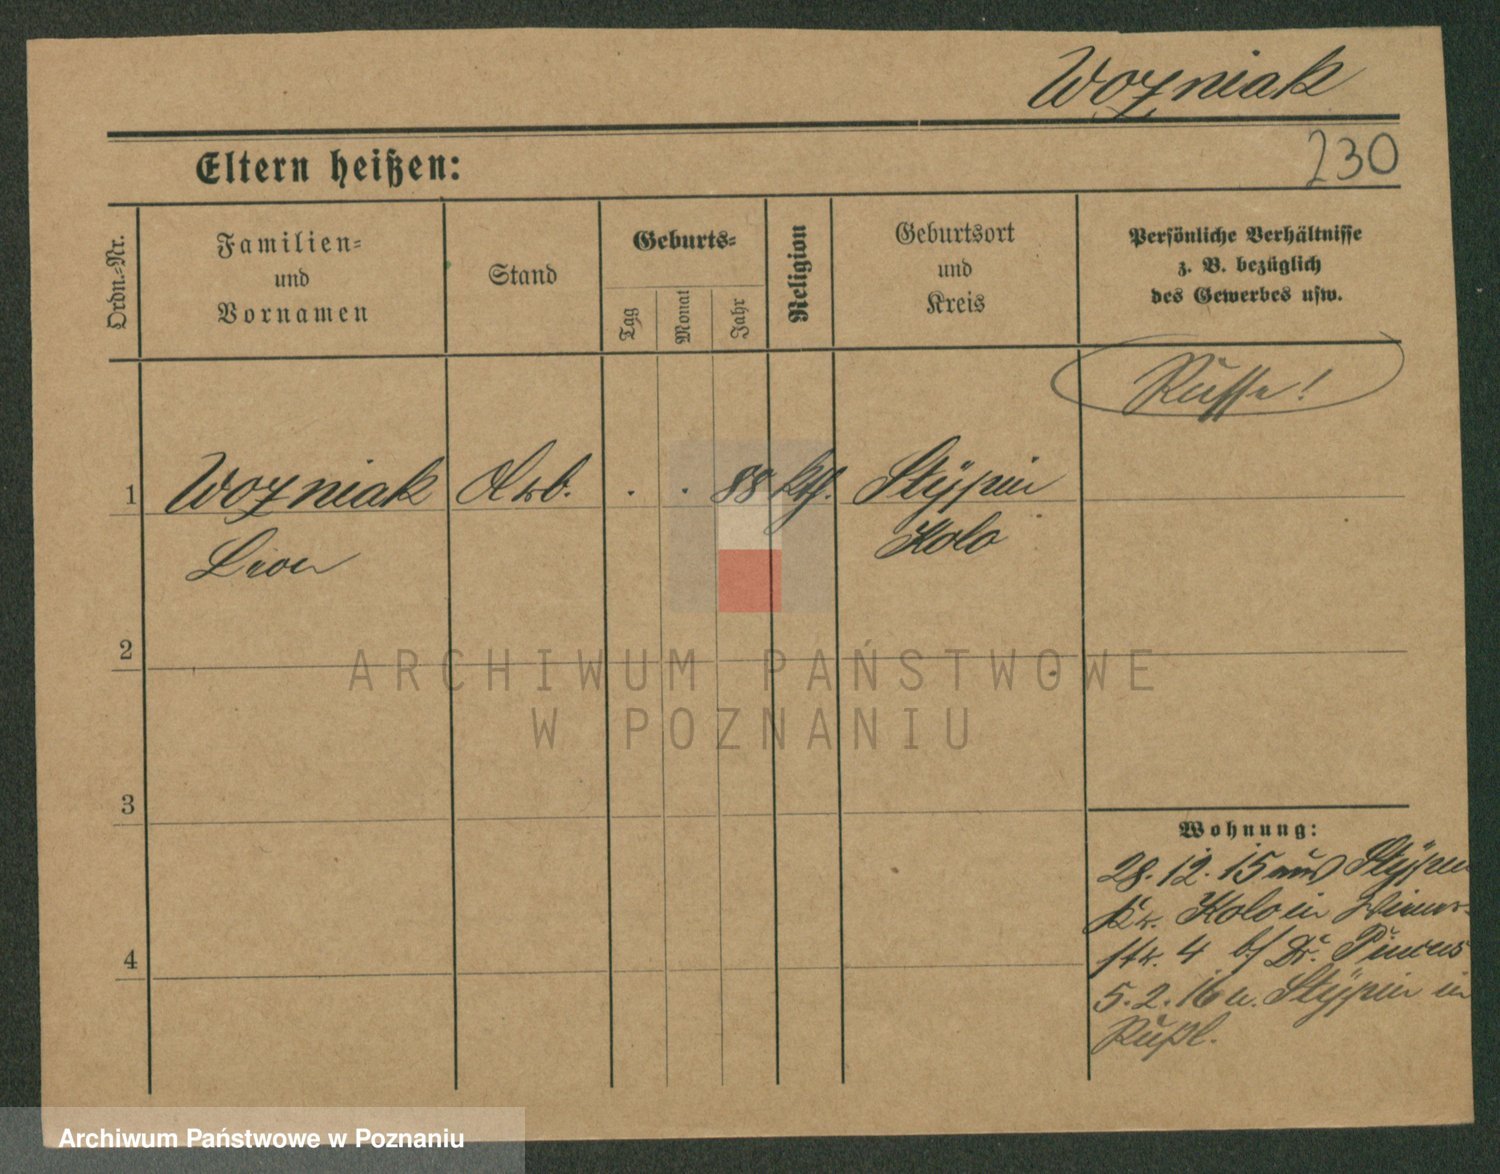 Wozniak
Eltern heißen:
230
Ordn.-Nr.
Familien-
und
Vornamen
Stand
Geburts-
Tag
Monat
Jahr
Religion
Geburtsort
und
Kreis
Persönliche Verhältnisse
z. B. bezüglich
des Gewerbes usw.
Russe!
1 Wozniak Arb. . . 88 kth. Stÿpin
Leon Kolo
2
3
4
Wohnung:
28.12.15 aus Stÿpin
Kr. Kolo in
str. 4 b/ Dr. Pincus
5.2.16 n. Stÿpin in
Rußl.
ARCHIWUM PAŃSTWOWE
W POZNANIU
Archiwum Państwowe w Poznaniu